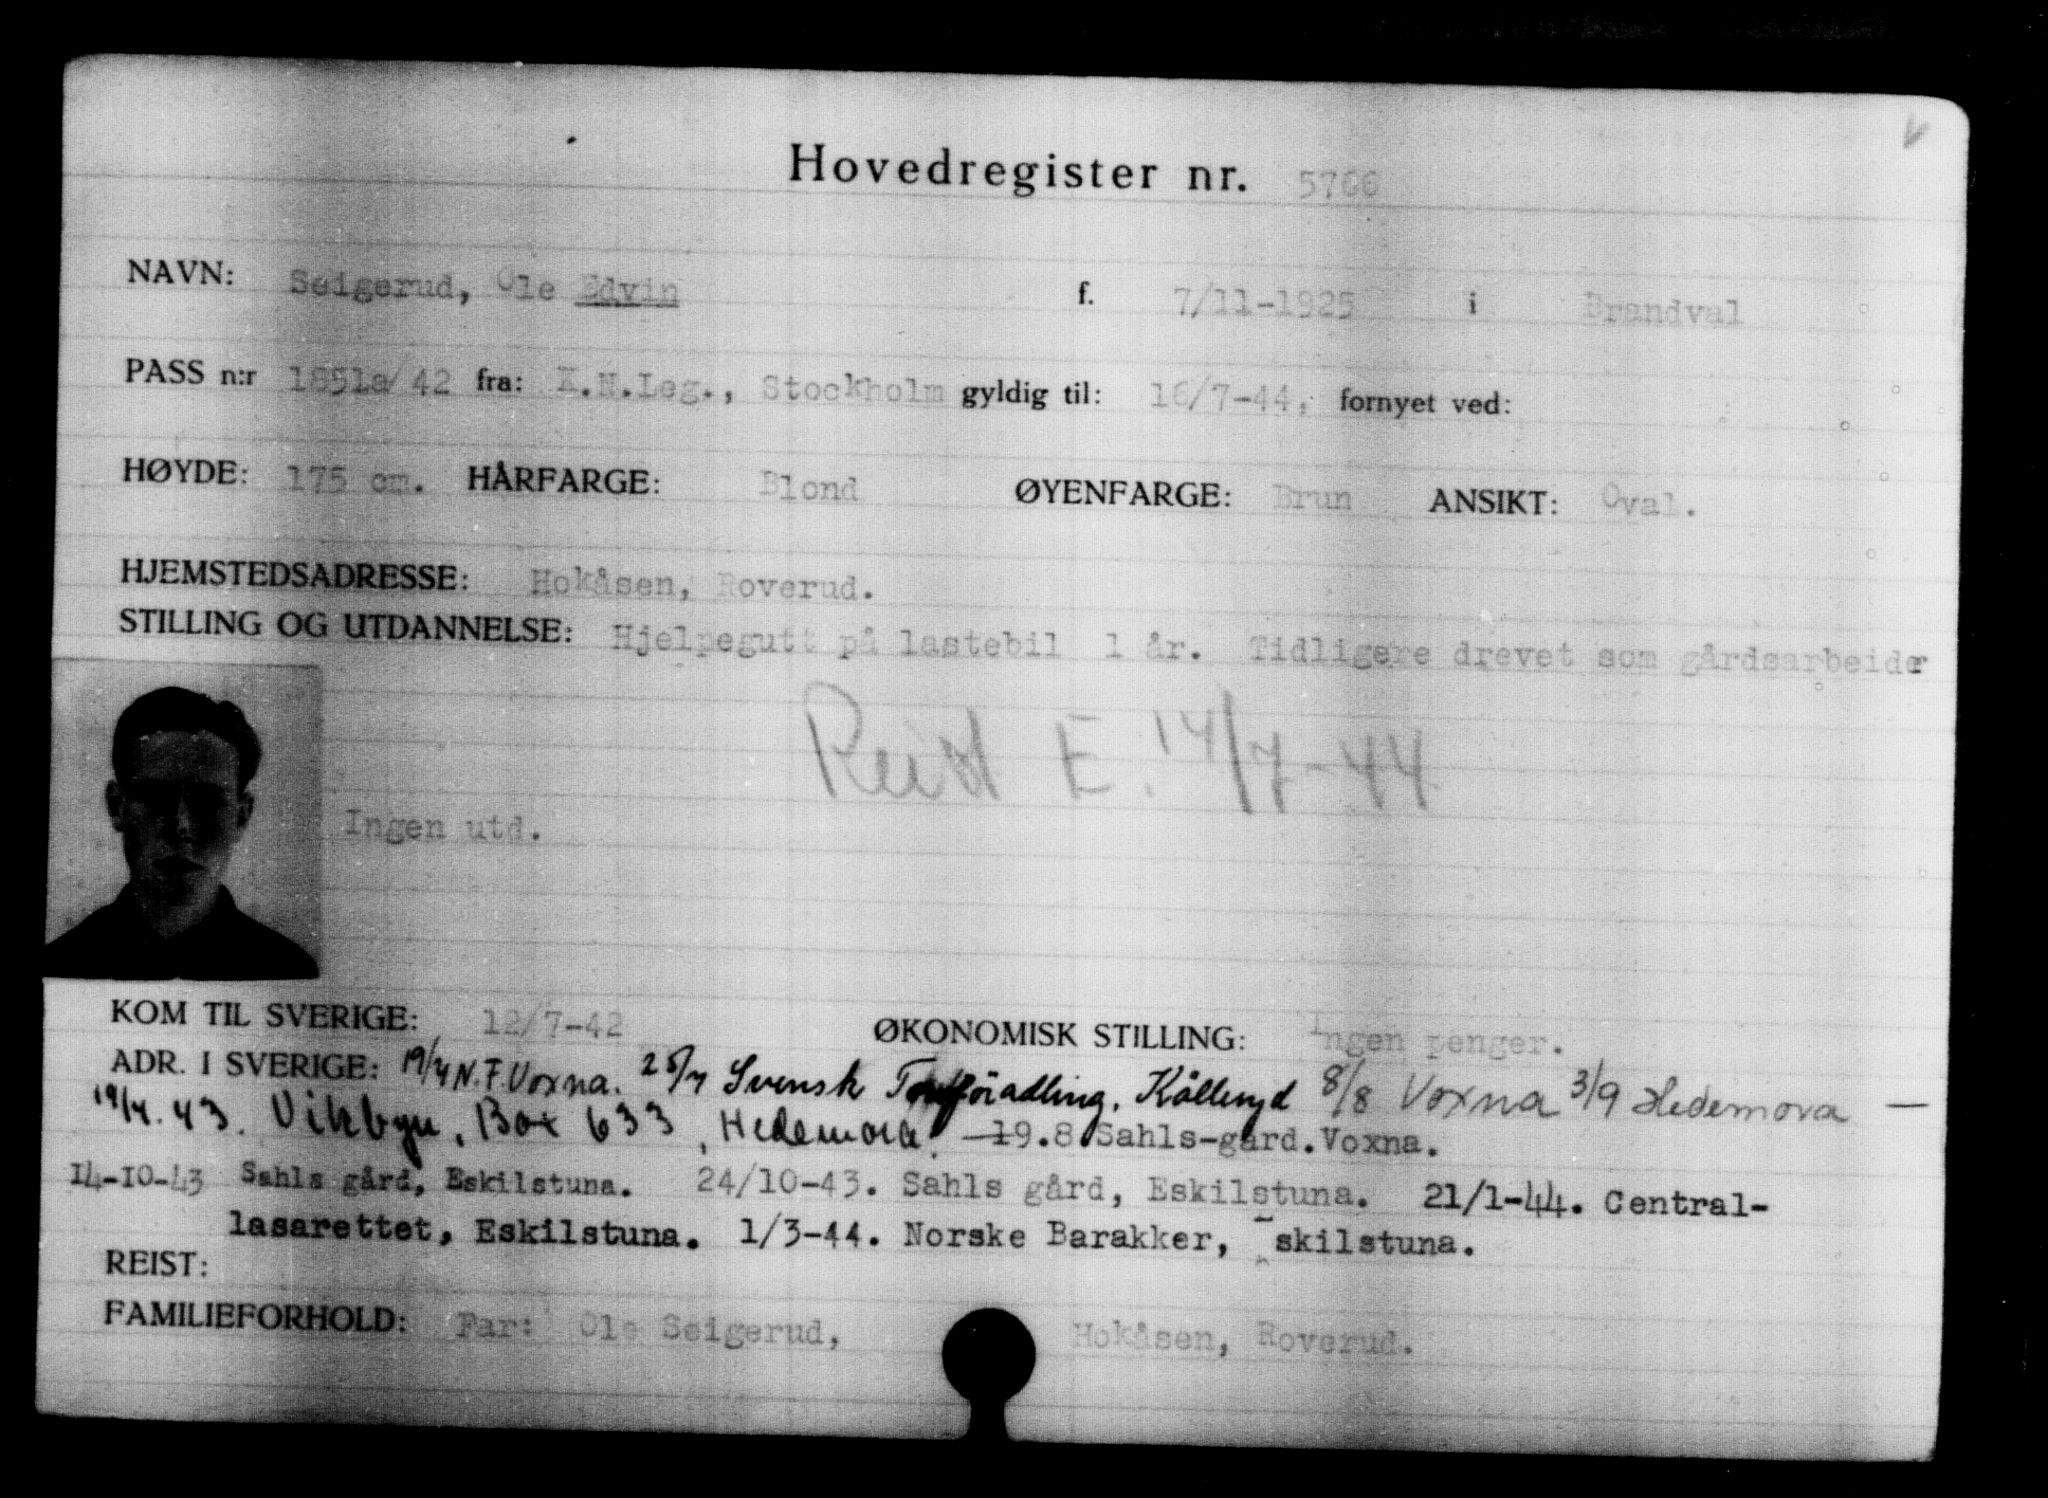 Hovedregister nr. 5766
NAVN: Seigerud, Ole Edvin f. 7/11-1925 i Brandval
PASS n:r 1851a/42 fra: K.N.Leg., Stockholm gyldig til: 16/7-44. fornyet ved:
HØYDE: 175 cm. HÅRFARGE: Blond ØYENFARGE: Brun ANSIKT: Oval.
HJEMSTEDSADRESSE: Hokåsen, Roverud.
STILLING OG UTDANNELSE: Hjelpegutt på lastebil 1 år. Tidligere drevet som gårdsarbeider
Reist E. 14/7-44
Ingen utd.
KOM TIL SVERIGE: 12/7-42 ØKONOMISK STILLING: Ingen penger.
ADR. I SVERIGE: 19/7 N.F. Voxna. 25/7 Svensk Torvförädling, 8/8 Voxna 3/9 Hedemora —
19/4.43. Vikbyn, Box 633, Hedemora. —19.8 Sahls-gård. Voxna.
14-10-43 Sahls gård, Eskilstuna. 24/10-43. Sahls gård, Eskilstuna. 21/1-44. Central-
lasarettet, Eskilstuna. 1/3-44. Norske Barakker, skilstuna.
REIST:
FAMILIEFORHOLD: Far: Ole Seigerud, Hokåsen, Roverud.